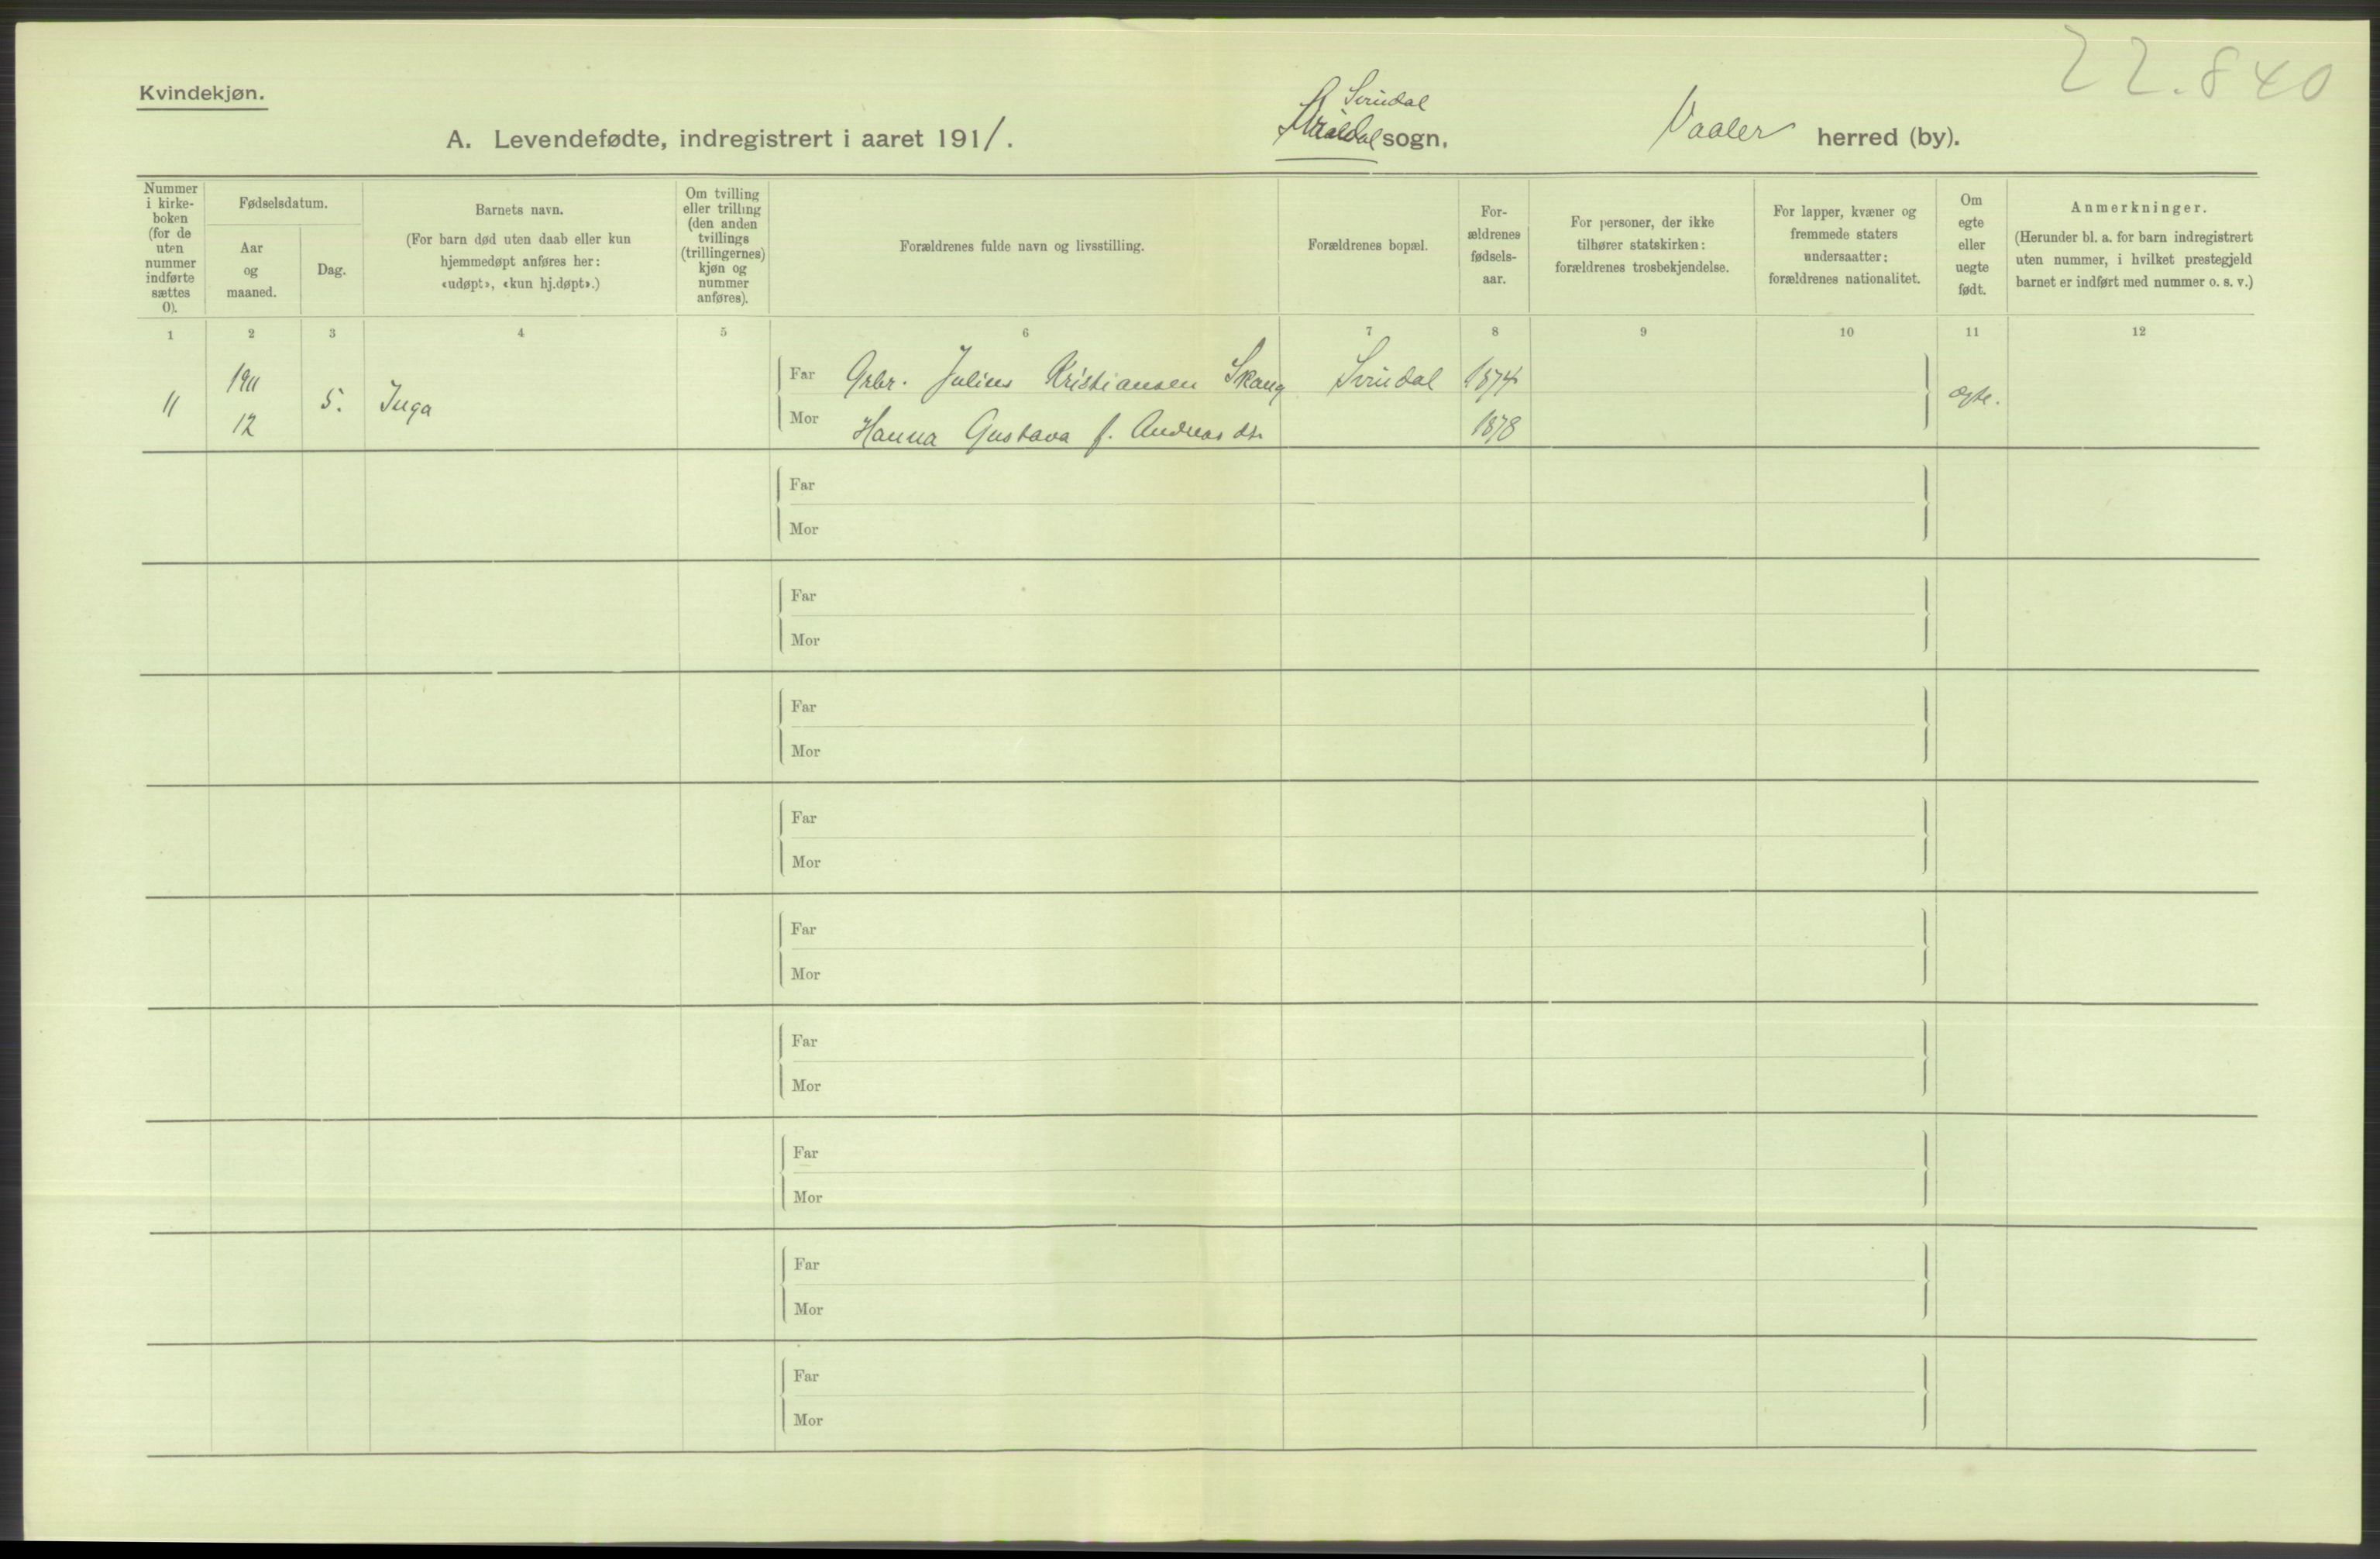 22.840
Kvindekjøn.
Svindal
A. Levendefødte, indregistrert i aaret 1911. sogn, Vaaler herred (by).
Nummer i kirke-boken (for de uten nummer indførte sættes 0).
Fødselsdatum.
Aar og maaned.
Dag.
Barnets navn.
(For barn død uten daab eller kun hjemmedøpt anføres her: «udøpt», «kun hj.døpt».)
Om tvilling eller trilling (den anden tvillings (trillingernes) kjøn og nummer anføres).
Forældrenes fulde navn og livsstilling.
Forældrenes bopæl.
For-ældrenes fødsels-aar.
For personer, der ikke tilhører statskirken: forældrenes trosbekjendelse.
For lapper, kvæner og fremmede staters undersaatter: forældrenes nationalitet.
Om egte eller uegte født.
Anmerkninger.
(Herunder bl. a. for barn indregistrert uten nummer, i hvilket prestegjeld barnet er indført med nummer o. s. v.)
1 2 3 4 5 6 7 8 9 10 11 12
11 1911 12 5. Inga
Far Grbr. Julius Kristiansen Skaug Svindal 1874 ægte.
Mor Hanna Gustava f. Andreasdtr 1878
Far
Mor
Far
Mor
Far
Mor
Far
Mor
Far
Mor
Far
Mor
Far
Mor
Far
Mor
Far
Mor